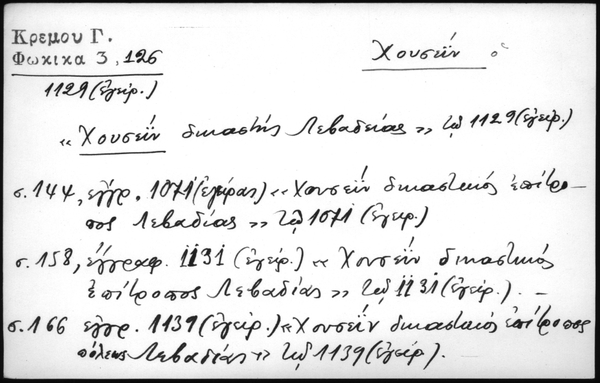 Κρεμου Γ.
Φωκικα 3, 126
Χουσεΐν ὁ
1129 (ἐγείρ.)
«Χουσεΐν δικαστής Λεβαδείας» τῷ 1129 (ἐγείρ.)
σ. 144, εγγρ. 1071 (ἐγείρας) «Χουσεΐν δικαστικός ἐπίτρο-
πος Λεβαδίας» τῷ 1071 (ἐγείρ.)
σ. 158, εγγραφ. 1131 (ἐγείρ.) «Χουσεΐν δικαστικός
ἐπίτροπος Λεβαδίας» τῷ 1131 (ἐγείρ.). —
σ. 166 εγγρ. 1139 (ἐγείρ.) «Χουσεΐν δικαστικός ἐπίτροπος
πόλεως Λεβαδίας» τῷ 1139 (ἐγείρ).